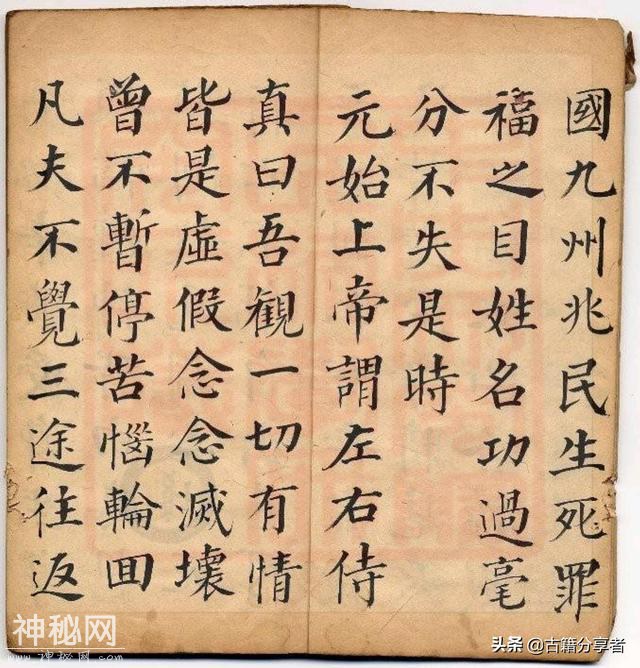 國九州兆民生死罪
福之目姓名功過毫
分不失是時
元始上帝謂左右侍
真曰吾観一切有情
皆是虛假念念滅壞
曾不暫停苦惱輪回
凡夫不覺三途往返
神秘网
www.神秘网.com
头条 @古籍分享者